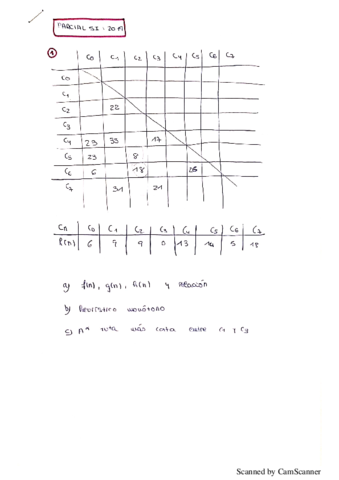 PARCIAL SI - 2019
1
C0 C1 C2 C3 C4 C5 C6 C7
C0
C1
C2 22
C3
C4 29 33 17
C5 23 8
C6 6 18
C7 31 21
Cn C0 C1 C2 C3 C4 C5 C6 C7
6 9 9 0 13 5 18
a) f(n), g(n), h(n) y relación
b) heurístico monótono
c) A* ruta más corta entre C3
Scanned by CamScanner